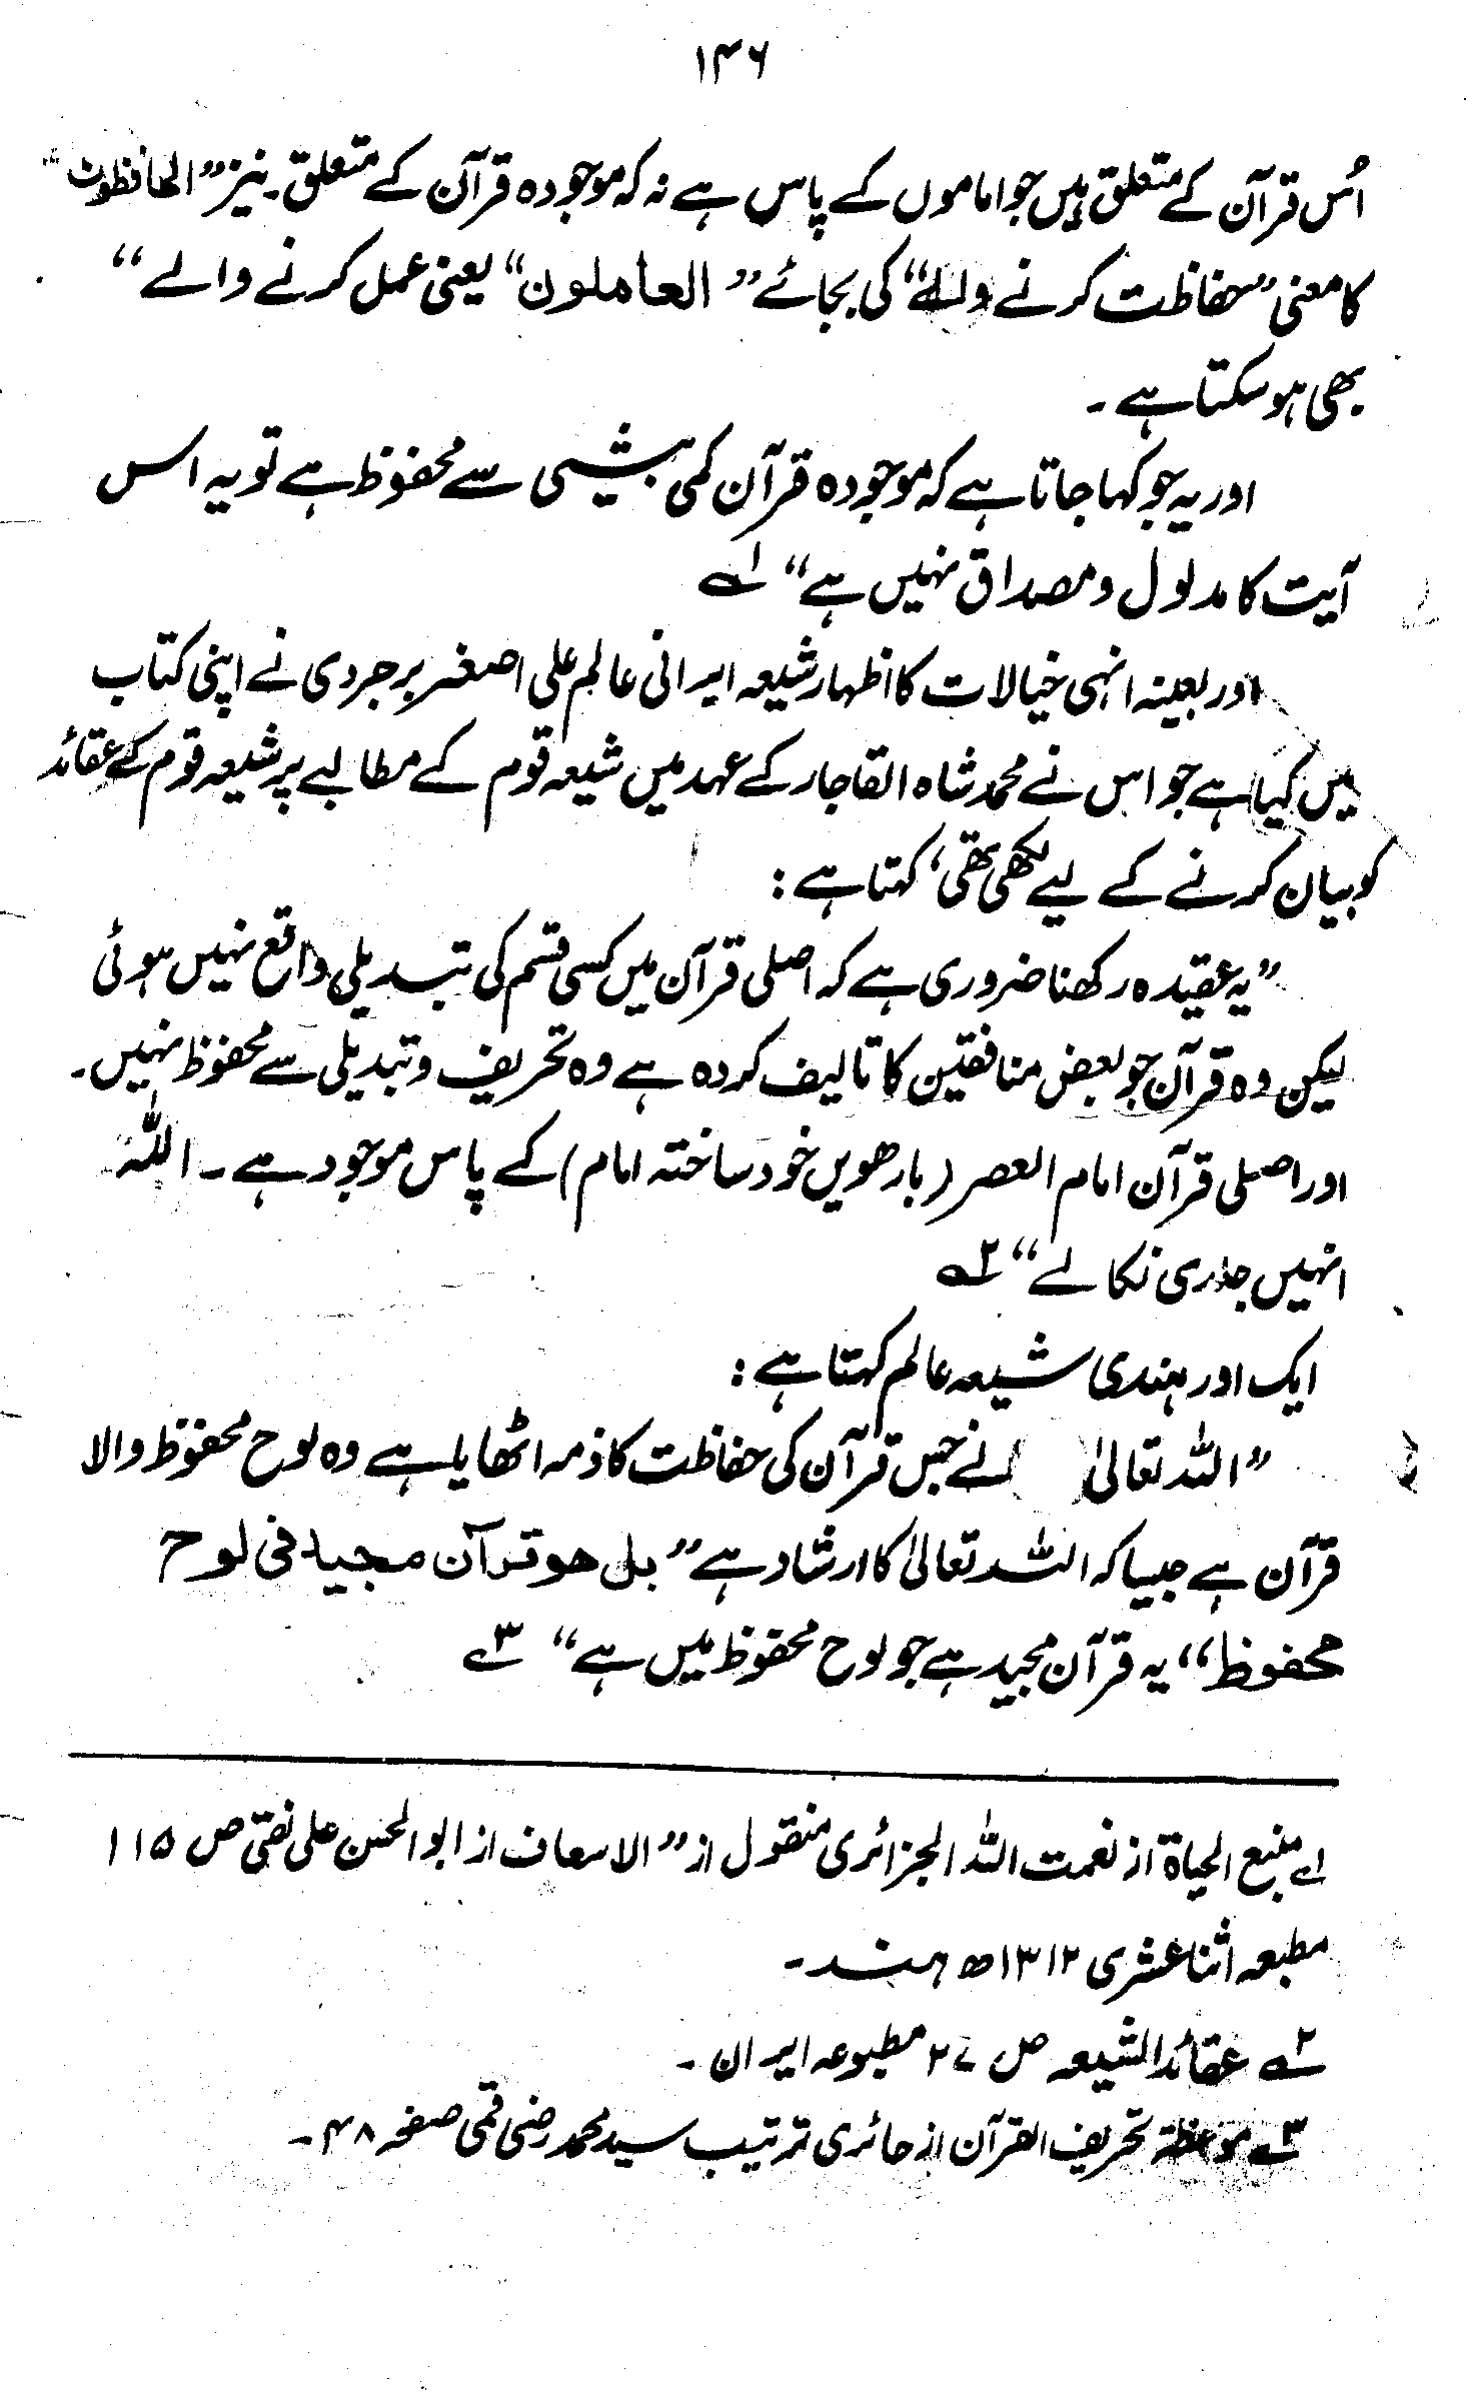 ۱۴۶
اُس قرآن کے متعلق ہیں جو اماموں کے پاس ہے نہ کہ موجودہ قرآن کے متعلق۔ نیز ”الحافظون“
کا معنی ”حفاظت کرنے والے“ کی بجائے ” العاملون“ یعنی عمل کرنے والے “
بھی ہو سکتا ہے ۔
اور یہ جو کہا جاتا ہے کہ موجودہ قرآن کمی بیشی سے محفوظ ہے تو یہ اس
آیت کا مدلول و مصداق نہیں ہے“ ۱ے
اور بعینہ انہی خیالات کا اظہار شیعہ ایرانی عالم علی اصغر برجردی نے اپنی کتاب
میں کیا ہے جو اس نے محمد شاہ القاجار کے عہد میں شیعہ قوم کے مطالبے پر شیعہ قوم کے عقائد
کو بیان کرنے کے لیے لکھی تھی، کہتا ہے :
”یہ عقیدہ رکھنا ضروری ہے کہ اصلی قرآن میں کسی قسم کی تبدیلی واقع نہیں ہوئی
لیکن وہ قرآن جو بعض منافقین کا تالیف کردہ ہے وہ تحریف و تبدیلی سے محفوظ نہیں۔
اور اصلی قرآن امام العصر (بارھویں خود ساختہ امام) کے پاس موجود ہے ۔ اللہ
انہیں جلدی نکالے “ ۲ے
ایک اور ہندی شیعہ عالم کہتا ہے :
”اللہ تعالیٰ نے جس قرآن کی حفاظت کا ذمہ اٹھایا ہے وہ لوح محفوظ والا
قرآن ہے جیسا کہ اللہ تعالیٰ کا ارشاد ہے ” بل هو قرآن مجید فی لوح
محفوظ“ یہ قرآن مجید ہے جو لوح محفوظ میں ہے “ ۳ے
۱ے منبع الحیاة از نعمت اللہ الجزائری منقول از ” الاسعاف از ابوالحسن علی نقی ص ۱۱۵
مطبعہ اثنا عشری ۱۳۱۲ھ ہند۔
۲ے عقائد الشیعہ ص ۲۷ مطبوعہ ایران ۔
۳ے موعظة تحریف القرآن از حائری ترتیب سید محمد رضی قمی صفحہ ۴۸۔